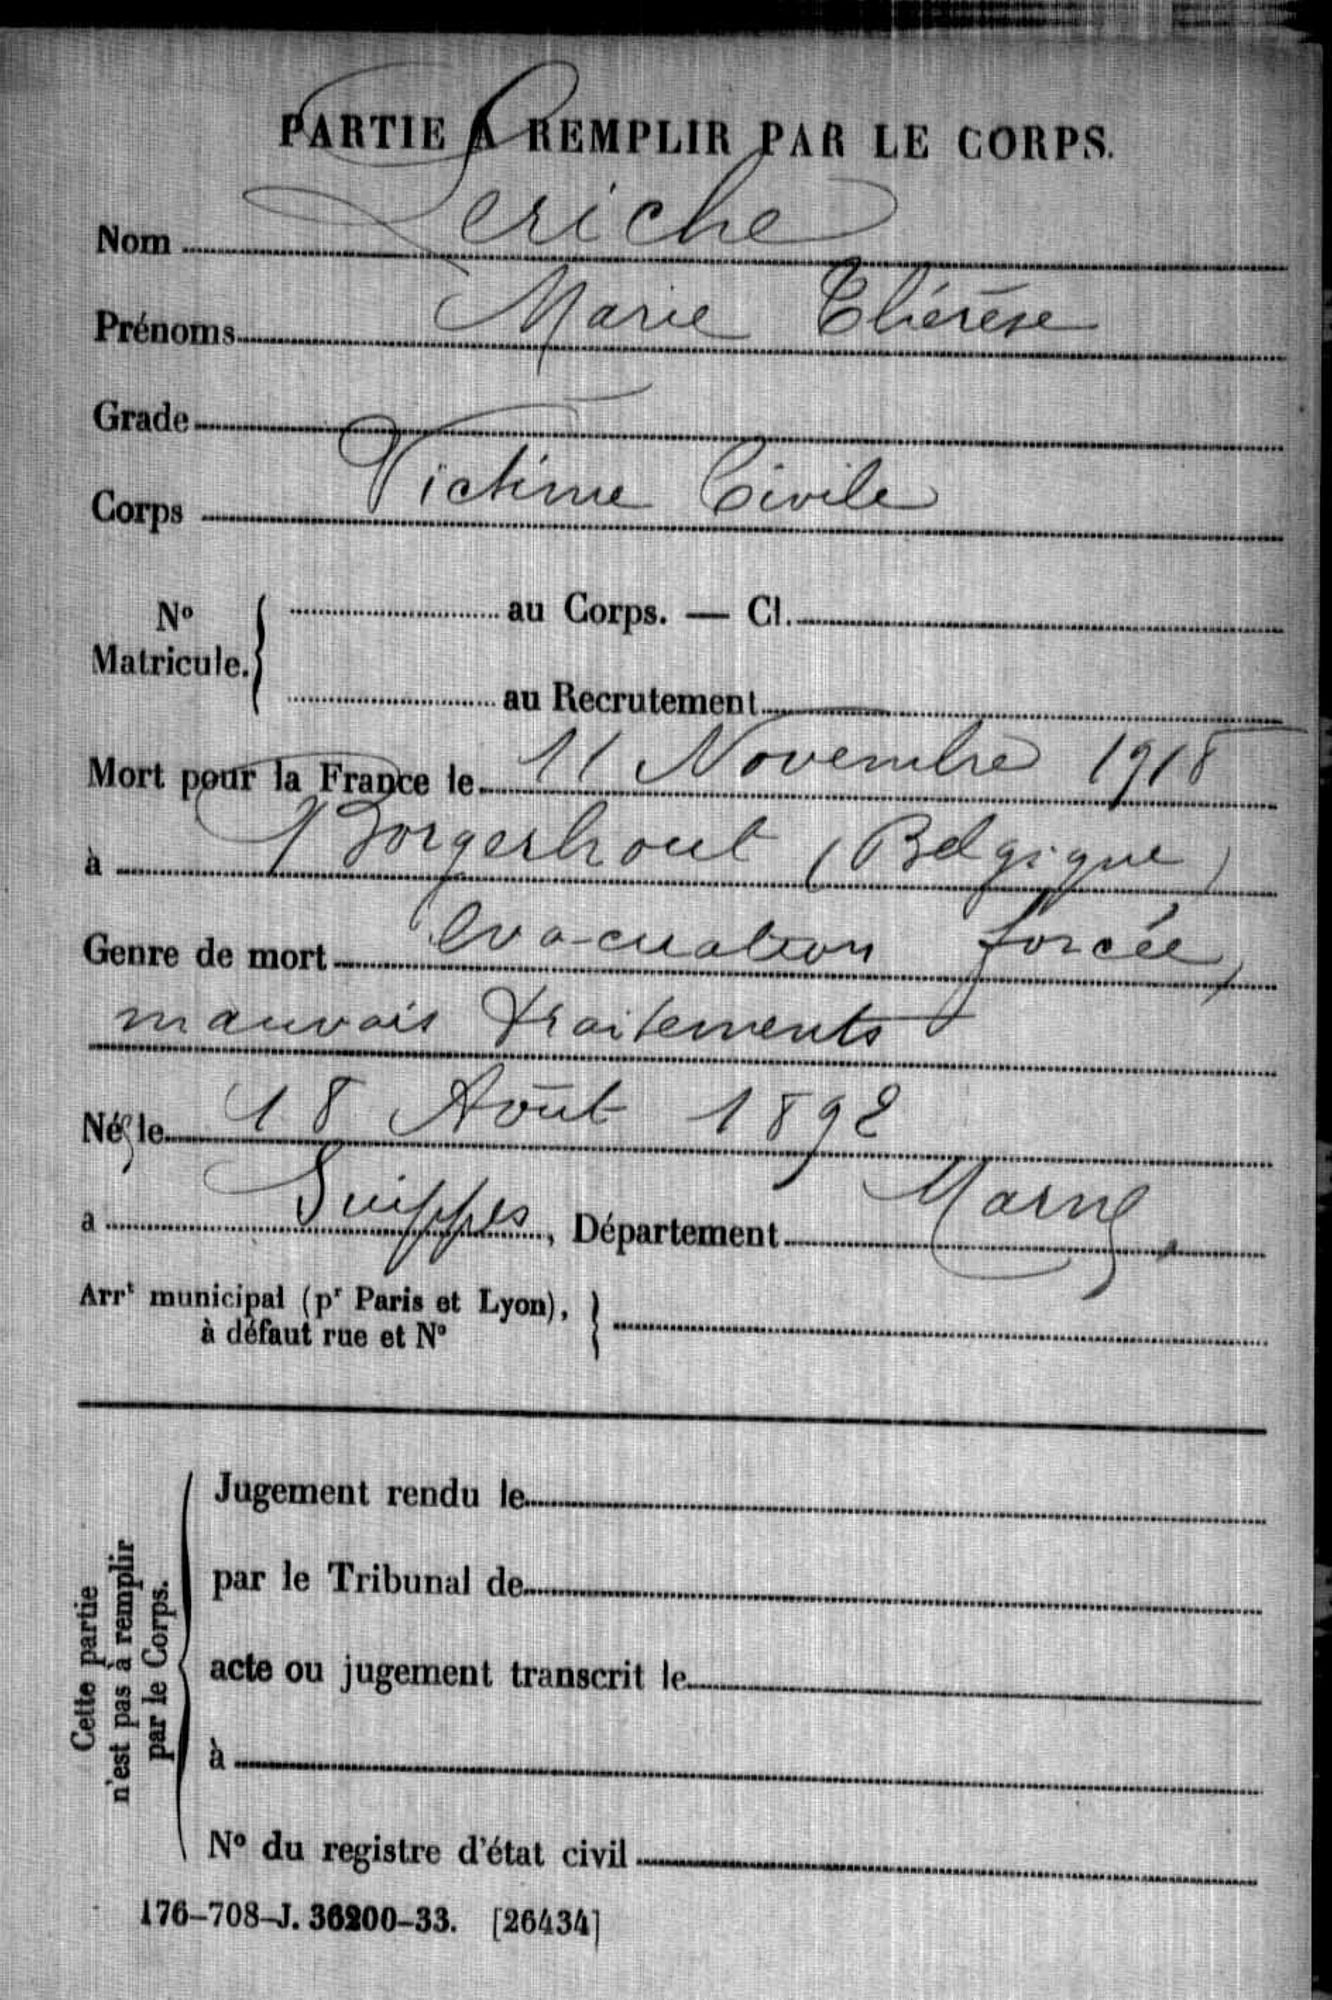 PARTIE A REMPLIR PAR LE CORPS.
Nom Leriche
Prénoms Marie Thérèse
Grade
Corps Victime Civile
No Matricule. { au Corps. — Cl.
au Recrutement
Mort pour la France le 11 Novembre 1918
à Borgerhout (Belgique)
Genre de mort évacuation forcée,
mauvais traitements
Née le 18 Août 1892
a Suippes, Département Marne
Arrt municipal (pr Paris et Lyon), }
à défaut rue et No
Cette partie
n'est pas à remplir
par le Corps.
Jugement rendu le
par le Tribunal de
acte ou jugement transcrit le
à
No du registre d'état civil
176-708-J. 36200-33. [26434]